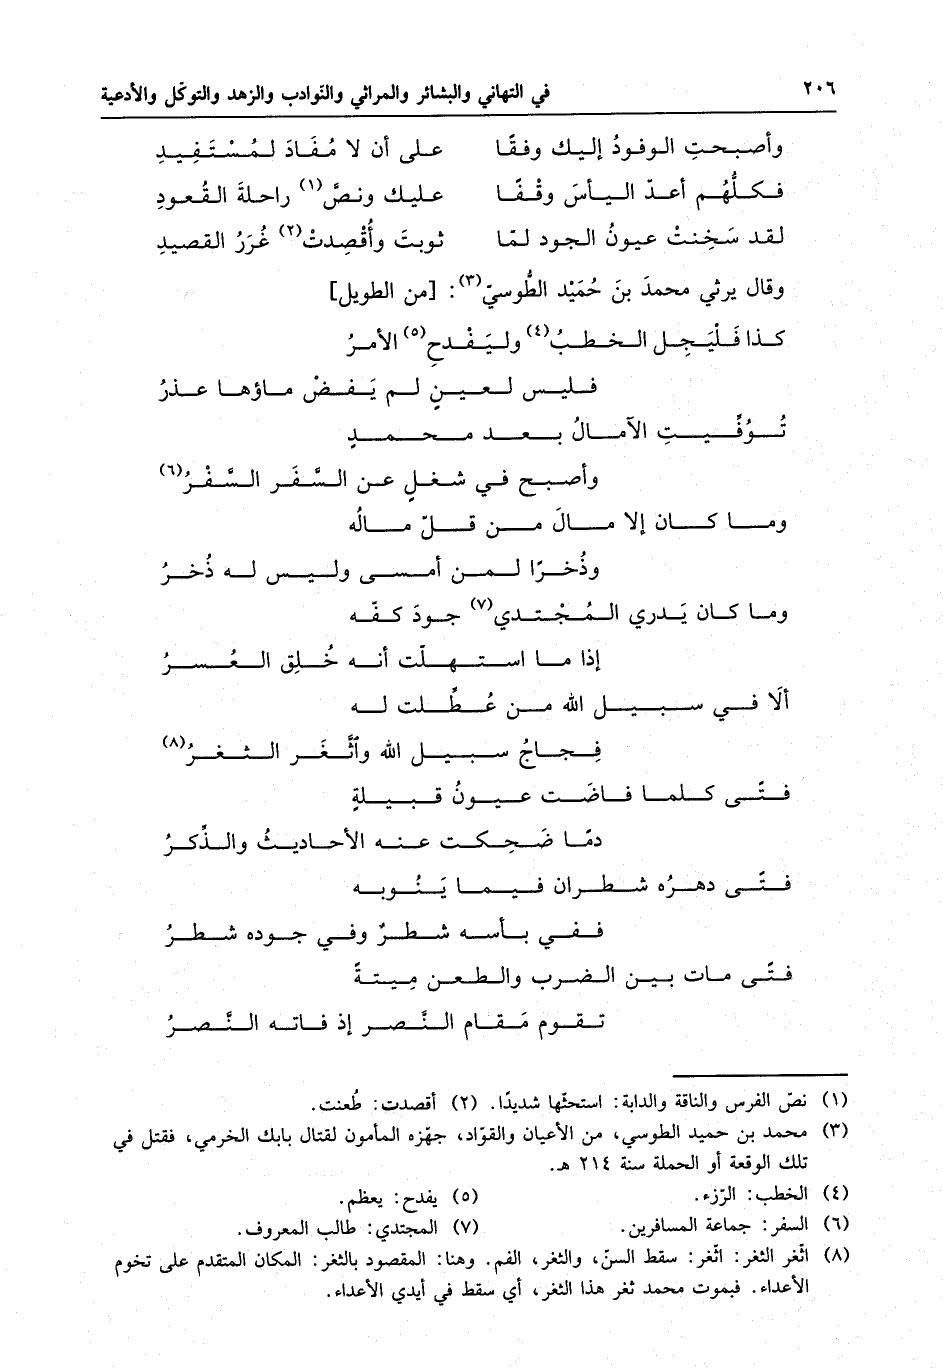 ٢٠٦ في التهاني والبشائر والمراثي والنّوادب والزهد والتوكّل والأدعية
وأصبحتِ الوفودُ إليك وفقًا على أن لا مُفَادَ لمُسْتَفِيدِ
فكلُّهُم أعدّ اليأسَ وقْفًا عليك ونصَّ(١) راحلةَ القُعودِ
لقد سَخِنتْ عيونُ الجود لمّا ثويتَ وأُقْصِدتْ(٢) غُرَرُ القصيدِ
وقال يرثي محمدَ بنَ حُمَيْد الطُّوسيّ(٣): [من الطويل]
كذا فَلْيَجِلِ الخطبُ(٤) وليَفْدحِ(٥) الأمرُ
فليس لعينٍ لم يَفضْ ماؤها عذرُ
تُوُفِّيتِ الآمالُ بعد محمدٍ
وأصبح في شغلٍ عن السَّفَر السَّفْرُ(٦)
وما كان إلا مالَ من قلّ مالُه
وذُخرًا لمن أمسى وليس له ذُخرُ
وما كان يَدري المُجْتدي(٧) جودَ كفّه
إذا ما استهلّت أنه خُلِق العُسرُ
ألَا في سبيل الله من عُطِّلت له
فِجاجُ سبيل الله وٱثَّغَر الثغرُ(٨)
فتًى كلما فاضَت عيونُ قبيلةٍ
دمًا ضَحِكت عنه الأحاديثُ والذِّكرُ
فتًى دهرُه شطران فيما يَنُوبه
ففي بأسه شطرٌ وفي جوده شطرُ
فتًى مات بين الضرب والطعن مِيتةً
تقوم مَقام النَّصر إذ فاته النَّصرُ
(١) نصّ الفرس والناقة والدابة: استحثّها شديدًا. (٢) أقصدت: طُعنت.
(٣) محمد بن حميد الطوسي، من الأعيان والقوّاد، جهّزه المأمون لقتال بابك الخرمي، فقتل في
تلك الوقعة أو الحملة سنة ٢١٤ هـ.
(٤) الخطب: الرّزء. (٥) يفدح: يعظم.
(٦) السفر: جماعة المسافرين. (٧) المجتدي: طالب المعروف.
(٨) اثّغر الثغر: اثّغر: سقط السنّ، والثغر، الفم. وهنا: المقصود بالثغر: المكان المتقدم على تخوم
الأعداء. فبموت محمد ثغر هذا الثغر، أي سقط في أيدي الأعداء.